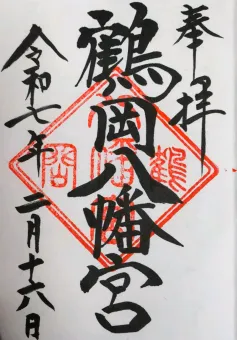 奉拝
鶴岡八幡宮
令和七年二月十六日